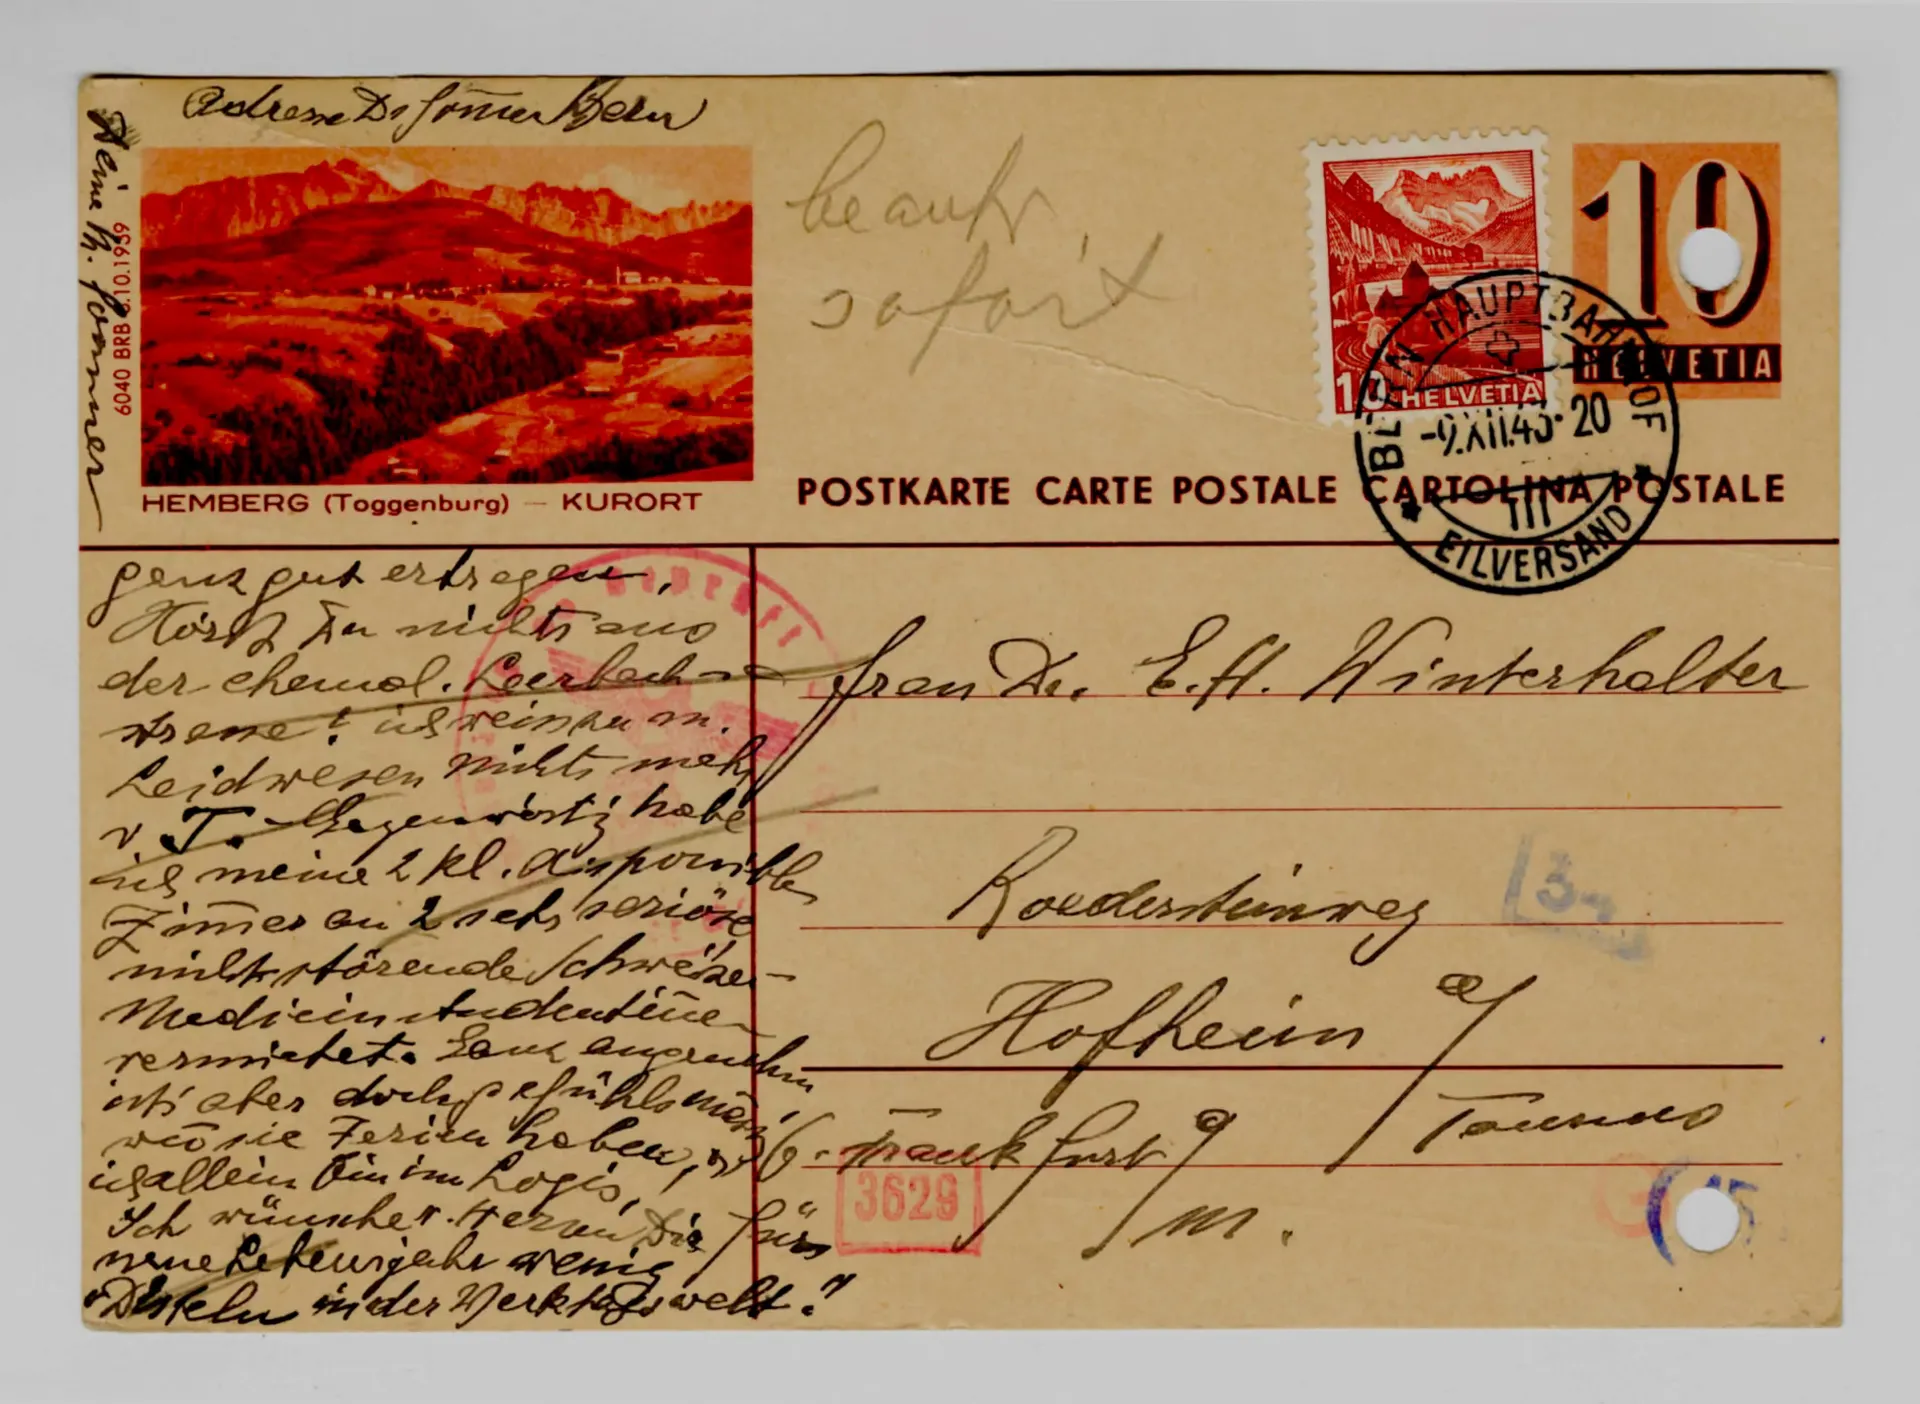 Adresse Dr Sommer Bern
Deine R. Sommer
6040 BRB 6.10.1939
HEMBERG (Toggenburg) – KURORT
beantw
sofort
10
HELVETIA
10
HELVETIA
BERN HAUPTBAHNHOF
-9.XII.43-20
III
EILVERSAND
POSTKARTE CARTE POSTALE CARTOLINA POSTALE
ganz gut ertragen.
Hörst Du nichts aus
der ehemal. Leerbach-
strasse? ich weiss zu m.
Leidwesen nichts mehr
v. T. Gegenwärtig habe
ich meine 2 kl. disponiblen
Zimmer an 2 sehr seriöse
nicht störende Schweizer-
Medicinstudentinnen
vermietet. Ganz angenehm
ists aber doch gefühlsmäss,
wo sie Ferien haben,
ich allein bin im Logis.
Ich wünsche v. Herzen Dir fürs
neue Lebensjahr wenig
"Disteln in der Werktagswelt!"
Frau Dr. E. H. Winterhalter
Roedersteinweg
Hofheim a/
Taunus
b. Frankfurt a/
M.
3629